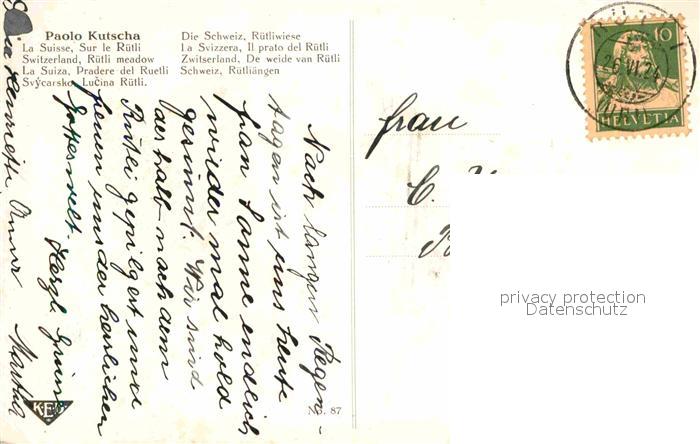 Paolo Kutscha
La Suisse, Sur le Rütli
Switzerland, Rütli meadow
La Suiza, Pradere del Ruetli
Svýcarsko, Lučina Rütli.
Die Schweiz, Rütliwiese
La Svizzera, Il prato del Rütli
Zwitserland, De weide van Rütli
Schweiz, Rütliängen
10
HELVETIA
26.VI.24
Frau
C.
Nach langen Regen-
tagen ist uns heute
frau Sonne endlich
wieder mal hold
gesinnt. Wir sind
deshalb nach dem
Rütli gepilgert und
freuen uns der herrlichen
Gotteswelt.
Herzl. Grüsse
Martha
KEG
No. 87
privacy protection
Datenschutz